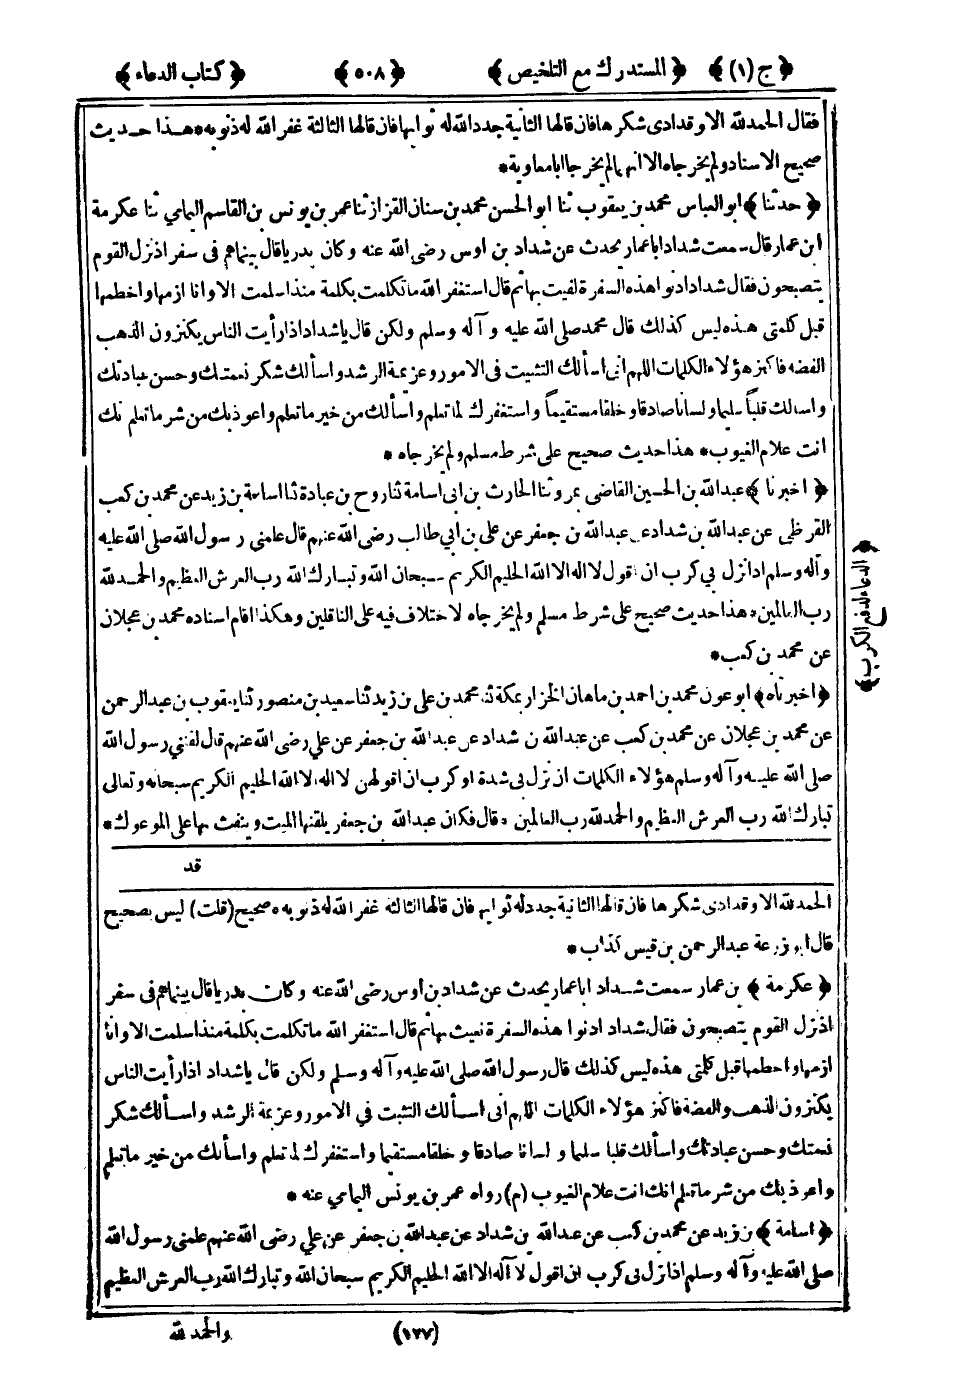 ﴿ ج (١) ﴾ ﴿ المستدرك مع التلخيص ﴾ ﴿ ٥٠٨ ﴾ ﴿ كتاب الدعاء ﴾
فقال الحمد لله الا وقد ادى شكرها فان قالها الثانية جدد الله له ثوابها فان قالها الثالثة غفر الله له ذنوبه * هذا حديث
صحيح الاسناد ولم يخرجاه الا انهما لم يخرجا ابا معاوية *
﴿ حدثنا ﴾ ابو العباس محمد بن يعقوب ثنا ابو الحسن محمد بن سنان القزاز ثنا عمر بن يونس بن القاسم اليمامي ثنا عكرمة
ابن عمار قال سمعت شدادا ابا عمار يحدث عن شداد بن اوس رضى الله عنه وكان بدريا قال بينما هم فى سفر اذ نزل القوم
يتصبحون فقال شداد ادنوا هذه السفرة لفيت بها ثم قال استغفر الله ما تكلمت بكلمة منذ اسلمت الا وانا ازمها واخطمها
قبل كلمتى هذه ليس كذلك قال محمد صلى الله عليه وآله وسلم ولكن قال يا شداد اذا رأيت الناس يكنزون الذهب
الفضه فاكنز هؤلاء الكلمات اللهم انى اسألك التثبيت فى الامور وعزيمة الرشد واسألك شكر نعمتك وحسن عبادتك
واسالك قلباً سليما ولسانا صادقا وخلقا مستقيماً واستغفرك لما تعلم وأسألك من خير ما تعلم واعوذ بك من شر ما تعلم نك
انت علام الغيوب * هذا حديث صحيح على شرط مسلم ولم يخرجاه *
﴿ اخبرنا ﴾ عبد الله بن الحسين القاضى بمرو ثنا الحارث بن ابى اسامة ثنا روح بن عبادة ثنا اسامة بن زيد عن محمد بن كعب
القرظى عن عبد الله بن شداد عن عبد الله بن جعفر عن على بن ابي طالب رضى الله عنهم قال علمنى رسول الله صلى الله عليه
وآله وسلم اذا نزل بي كرب ان اقول لا اله الا الله الحليم الكريم سبحان الله وتبارك الله رب العرش العظيم والحمد لله
رب العالمين * هذا حديث صحيح على شرط مسلم ولم يخرجاه لاختلاف فيه على الناقلين وهكذا اقام اسناده محمد بن عجلان
عن محمد بن كعب *
﴿ اخبرناه ﴾ ابو عون محمد بن احمد بن ماهان الخزار بمكة ثنا محمد بن على بن زيد ثنا سعيد بن منصور ثنا يعقوب بن عبد الرحمن
عن محمد بن عجلان عن محمد بن كعب عن عبد الله بن شداد عن عبد الله بن جعفر عن علي رضى الله عنهم قال لقنني رسول الله
صلى الله عليه وآله وسلم هؤلاء الكلمات ان نزل بى شدة او كرب ان اقولهن لا اله الا الله الحليم الكريم سبحانه وتعالى
تبارك الله رب العرش العظيم والحمد لله رب العالمين * قال فكان عبد الله بن جعفر يلقنها الميت وينفث بها على الموعوك *
﴿ الدعاء لدفع الكرب ﴾
قد
الحمد لله الا وقد ادى شكرها فان قالها الثانية جدد له ثوابها فان قالها الثالثة غفر الله له ذنوبه * صحيح (قلت) ليس بصحيح
قال ابو زرعة عبد الرحمن بن قيس كذاب *
﴿ عكرمة ﴾ بن عمار سمعت شداد ابا عمار يحدث عن شداد بن أوس رضى الله عنه وكان بدريا قال بينما هم فى سفر
اذ نزل القوم يتصبحون فقال شداد ادنوا هذه السفرة نعيث بها ثم قال استغفر الله ما تكلمت بكلمة منذ اسلمت الا وانا
ازمها واخطمها قبل كلمتى هذه ليس كذلك قال رسول الله صلى الله عليه وآله وسلم ولكن قال يا شداد اذا رأيت الناس
يكنزون الذهب والفضة فاكنز هؤلاء الكلمات اللهم انى اسألك التثبت في الامور وعزيمة الرشد واسألك شكر
نعمتك وحسن عبادتك واسألك قلبا سليما ولسانا صادقا وخلقا مستقيما واستغفرك لما تعلم واسألك من خير ما تعلم
واعوذ بك من شر ما تعلم انك انت علام الغيوب (م) رواه عمر بن يونس اليمامي عنه *
﴿ اسامة ﴾ بن زيد عن محمد بن كعب عن عبد الله بن شداد عن عبد الله بن جعفر عن علي رضى الله عنهم علمنى رسول الله
صلى الله عليه وآله وسلم اذا نزل بى كرب ان اقول لا آله الا الله الحليم الكريم سبحان الله وتبارك الله رب العرش العظيم
(١٢٧) والحمد لله